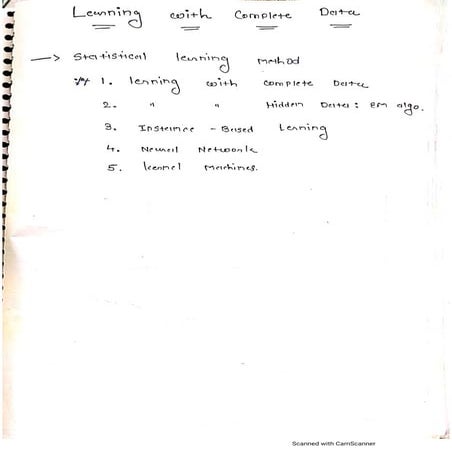 Learning with Complete Data
→ Statistical learning method
** 1. lerning with complete Data
2. " " Hidden Data: em algo.
3. Instance - Based Lerning
4. Neural Network
5. kernel Machines.
Scanned with CamScanner